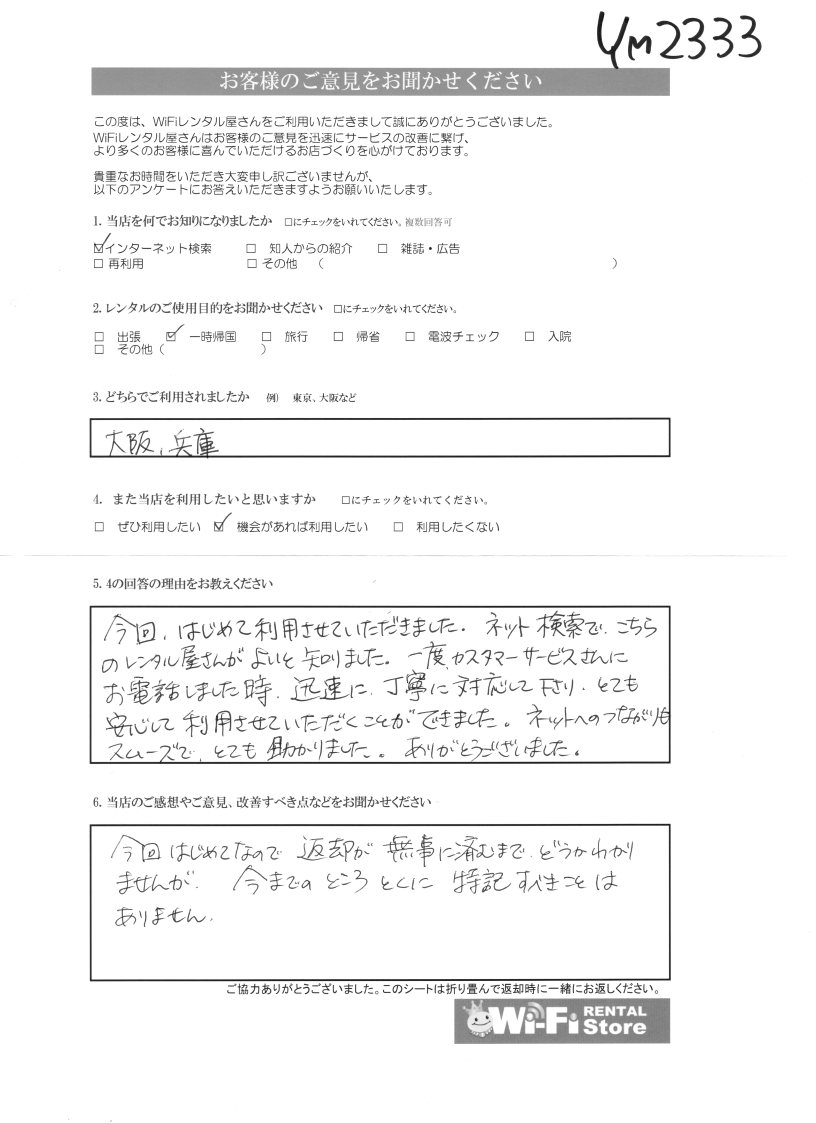 YM2333
お客様のご意見をお聞かせください
この度は、WiFiレンタル屋さんをご利用いただきまして誠にありがとうございました。
WiFiレンタル屋さんはお客様のご意見を迅速にサービスの改善に繋げ、
より多くのお客様に喜んでいただけるお店づくりを心がけております。
貴重なお時間をいただき大変申し訳ございませんが、
以下のアンケートにお答えいただきますようお願いいたします。
1. 当店を何でお知りになりましたか □にチェックをいれてください。複数回答可
☑インターネット検索 □ 知人からの紹介 □ 雑誌・広告
□ 再利用 □ その他 ( )
2. レンタルのご使用目的をお聞かせください □にチェックをいれてください。
□ 出張 ☑ 一時帰国 □ 旅行 □ 帰省 □ 電波チェック □ 入院
□ その他 ( )
3. どちらでご利用されましたか 例) 東京、大阪など
大阪、兵庫
4. また当店を利用したいと思いますか □にチェックをいれてください。
□ ぜひ利用したい ☑ 機会があれば利用したい □ 利用したくない
5. 4の回答の理由をお教えください
今回、はじめて利用させていただきました。ネット検索で、こちら
のレンタル屋さんがよいと知りました。一度、カスタマーサービスさんに
お電話しました時、迅速に、丁寧に対応して下さり、とても
安心して利用させていただくことができました。ネットへのつながりも
スムーズで、とても助かりました。ありがとうございました。
6. 当店のご感想やご意見、改善すべき点などをお聞かせください
今回はじめてなので返却が無事に済むまで、どうかわかり
ませんが、今までのところとくに特記すべきことは
ありません。
ご協力ありがとうございました。このシートは折り畳んで返却時に一緒にお返しください。
Wi-Fi RENTAL Store